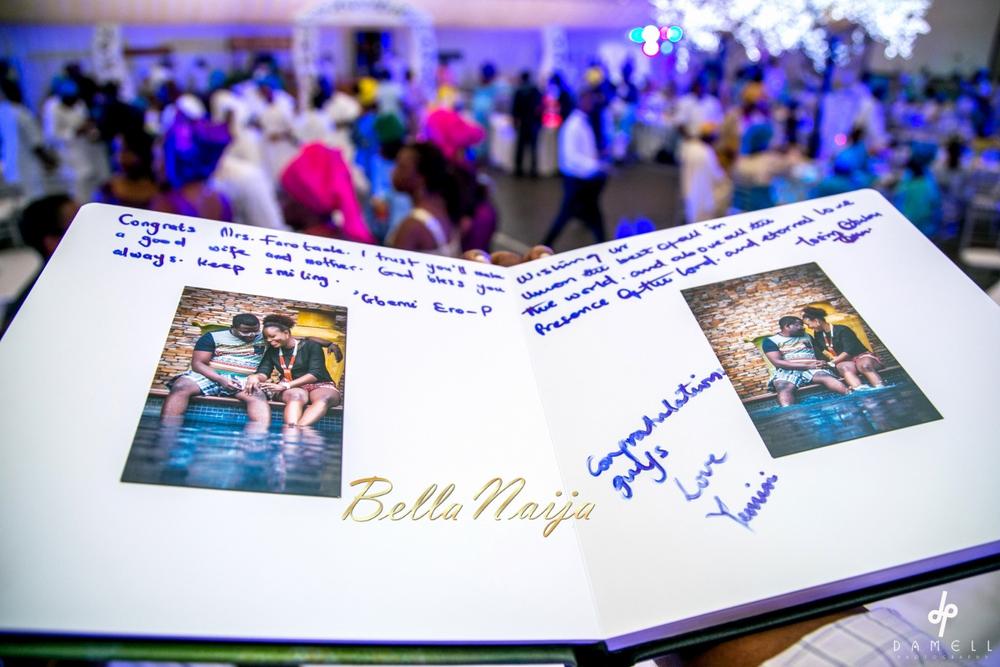 Congrats Mrs. Farotade. I trust you'll make
a good wife and mother. God bless you
always. Keep smiling. 'Gbemi Ero-P
Wishing
Union the best of all in
the world, and above all the
Presence of the Lord, and eternal love
Congratulations
guys
Love
Yemini
BellaNaija
dp
DAMELL
PHOTOGRAPHY